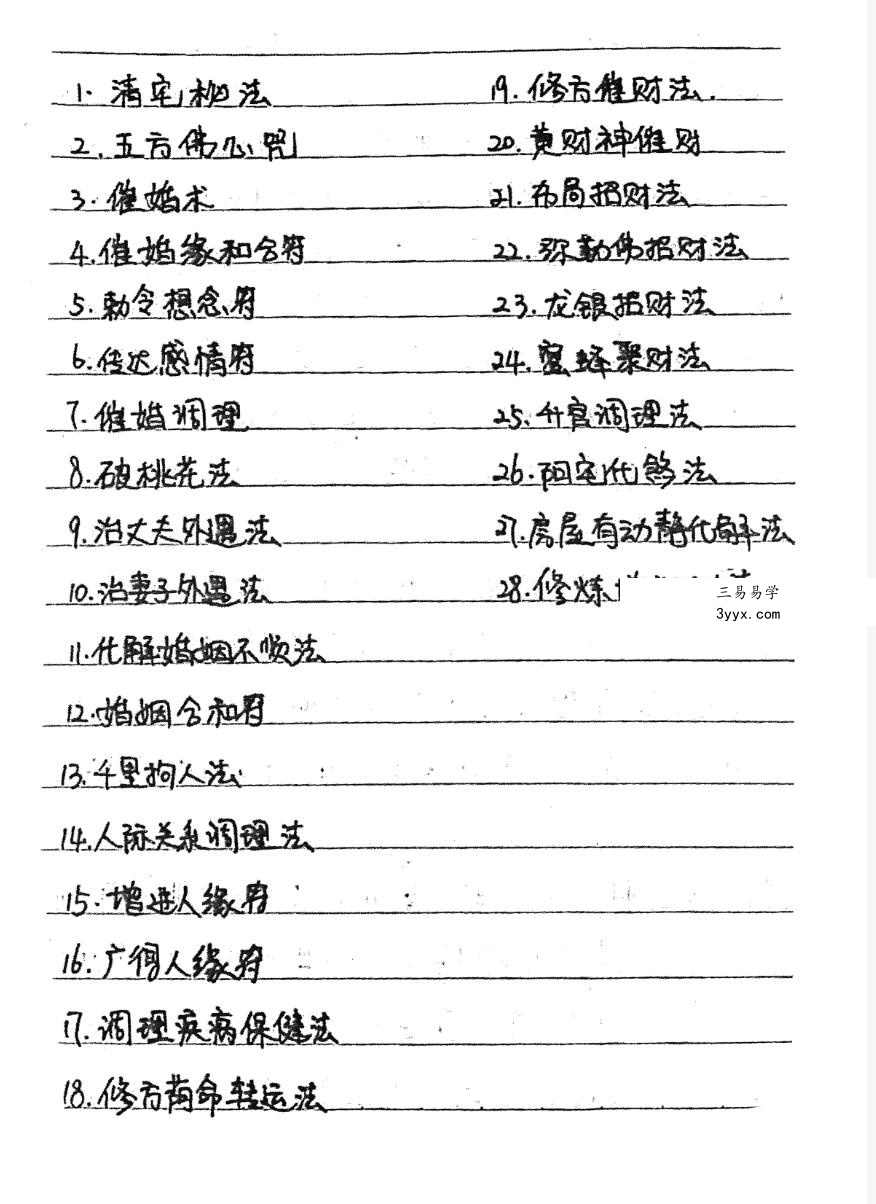 1. 清宅秘法
2. 五方佛心咒
3. 催婚术
4. 催婚缘和合符
5. 勅令想念符
6. 传达感情符
7. 催婚调理
8. 破桃花法
9. 治丈夫外遇法
10. 治妻子外遇法
11. 化解婚姻不顺法
12. 婚姻合和符
13. 千里拘人法
14. 人际关系调理法
15. 增进人缘符
16. 广得人缘符
17. 调理疾病保健法
18. 修方荫命转运法
19. 修方催财法.
20. 黄财神催财
21. 布局招财法
22. 弥勒佛招财法
23. 龙银招财法
24. 蜜蜂聚财法
25. 升官调理法
26. 阳宅化煞法
27. 房屋有动静化解法
28. 修炼
三易易学
3yyx.com